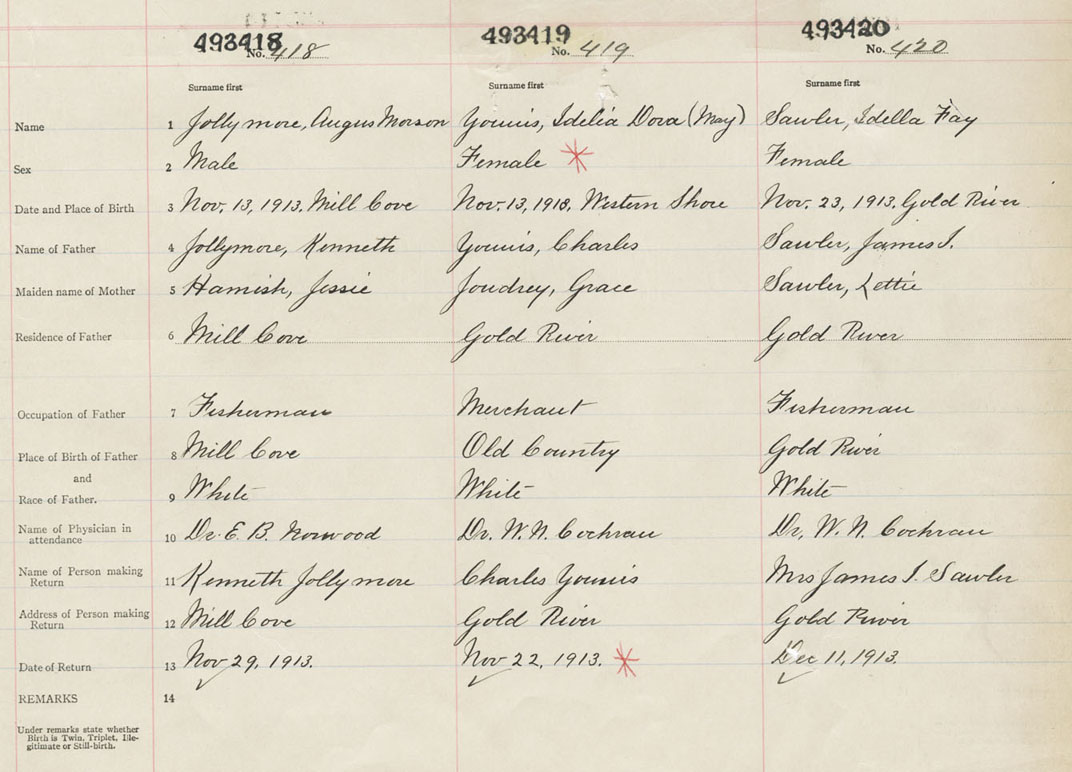 493418 493419 493420
No. 418 No. 419 No. 420
Surname first Surname first Surname first
Name 1 Jollymore, Angus Morson Younis, Idelia Dora (May) Sawler, Idella Fay
Sex 2 Male Female Female
Date and Place of Birth 3 Nov. 13, 1913. Mill Cove Nov. 13, 1918, Western Shore Nov. 23, 1913, Gold River
Name of Father 4 Jollymore, Kenneth Younis, Charles Sawler, James I.
Maiden name of Mother 5 Hamish, Jessie Joudrey, Grace Sawler, Lettie
Residence of Father 6 Mill Cove Gold River Gold River
Occupation of Father 7 Fisherman Merchant Fisherman
Place of Birth of Father 8 Mill Cove Old Country Gold River
and
Race of Father. 9 White White White
Name of Physician in
attendance 10 Dr. E. B. Norwood Dr. W. N. Cochran Dr. W. N. Cochran
Name of Person making
Return 11 Kenneth Jollymore Charles Younis Mrs James I. Sawler
Address of Person making
Return 12 Mill Cove Gold River Gold River
Date of Return 13 Nov 29, 1913. Nov 22, 1913. Dec 11, 1913.
REMARKS 14
Under remarks state whether
Birth is Twin, Triplet, Ille-
gitimate or Still-birth.